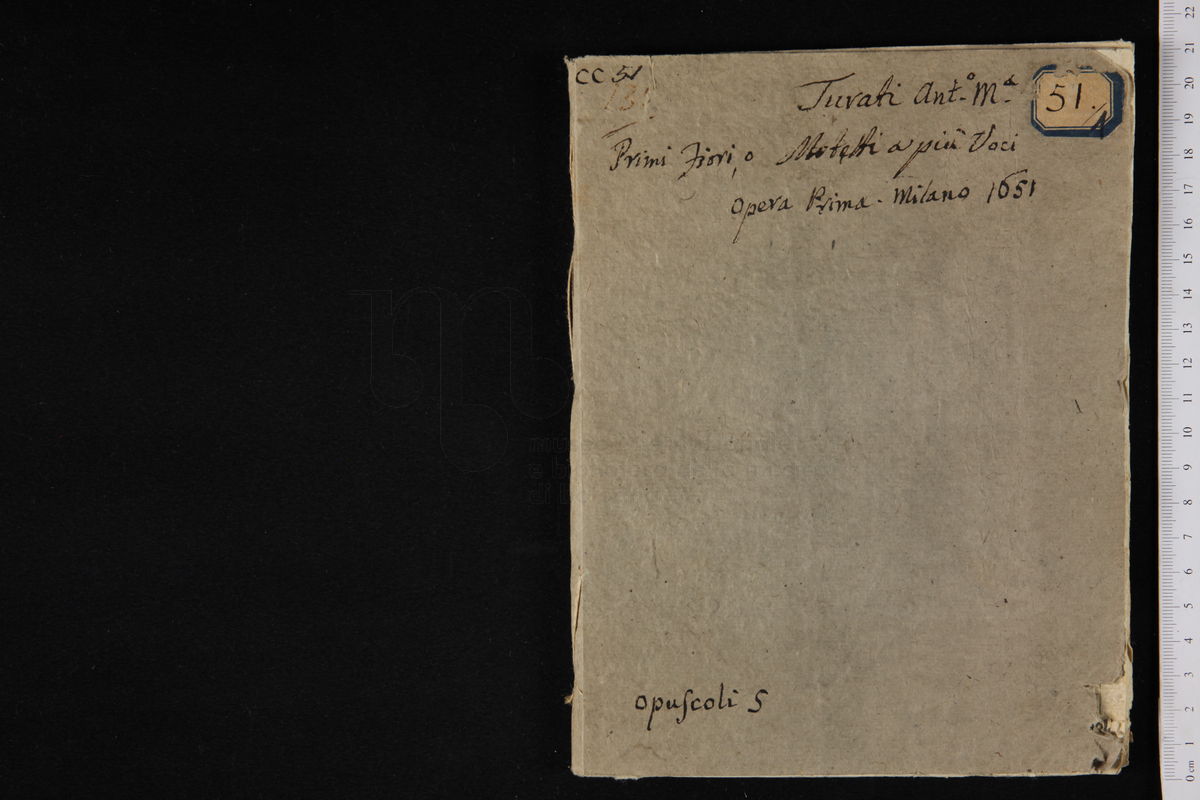 CC 51
Turati Ant.º M.ª
51.
Primi Fiori, o Motetti a più Voci
Opera Prima. Milano 1651
opuſcoli 5
22
21
20
19
18
17
16
15
14
13
12
11
10
9
8
7
6
5
4
3
2
1
0 cm